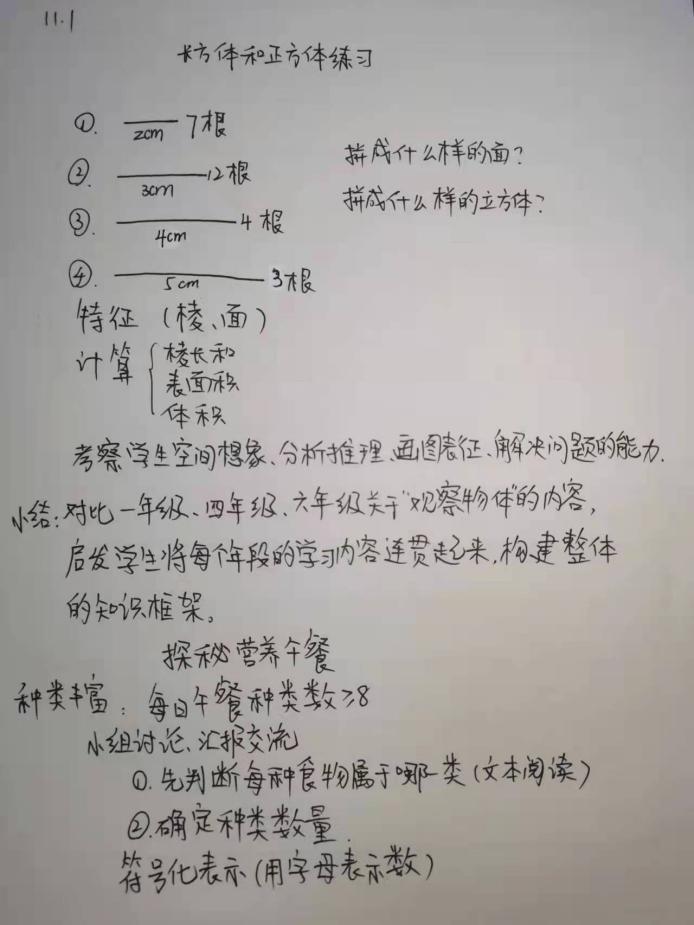 11.1
长方体和正方体练习
①. 2cm 7根
②. 3cm 12根
拼成什么样的面?
③. 4cm 4根
拼成什么样的立方体?
④. 5cm 3根
特征(棱、面)
计算{棱长和
表面积
体积
考察学生空间想象、分析推理、画图表征、解决问题的能力.
小结:对比一年级、四年级、六年级关于"观察物体"的内容,
启发学生将每个年段的学习内容连贯起来,构建整体
的知识框架。
探秘营养午餐
种类丰富:每日午餐种类数≥8
小组讨论、汇报交流
①.先判断每种食物属于哪一类(文本阅读)
②.确定种类数量.
符号化表示(用字母表示数)